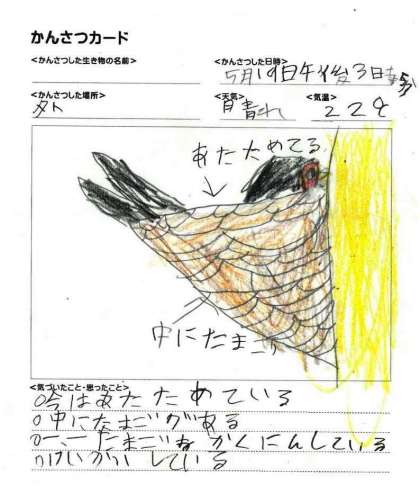 かんさつカード
<かんさつした生き物の名前>
<かんさつした日時>
5月19日午後3日寺5分
<かんさつした場所>
外
<天気>
晴れ
<気温>
22℃
あたためてる
中にたまご
<気づいたこと・思ったこと>
○今はあたためている
○中にたまごがある
たまごをかくにんしている
○けいかいしている